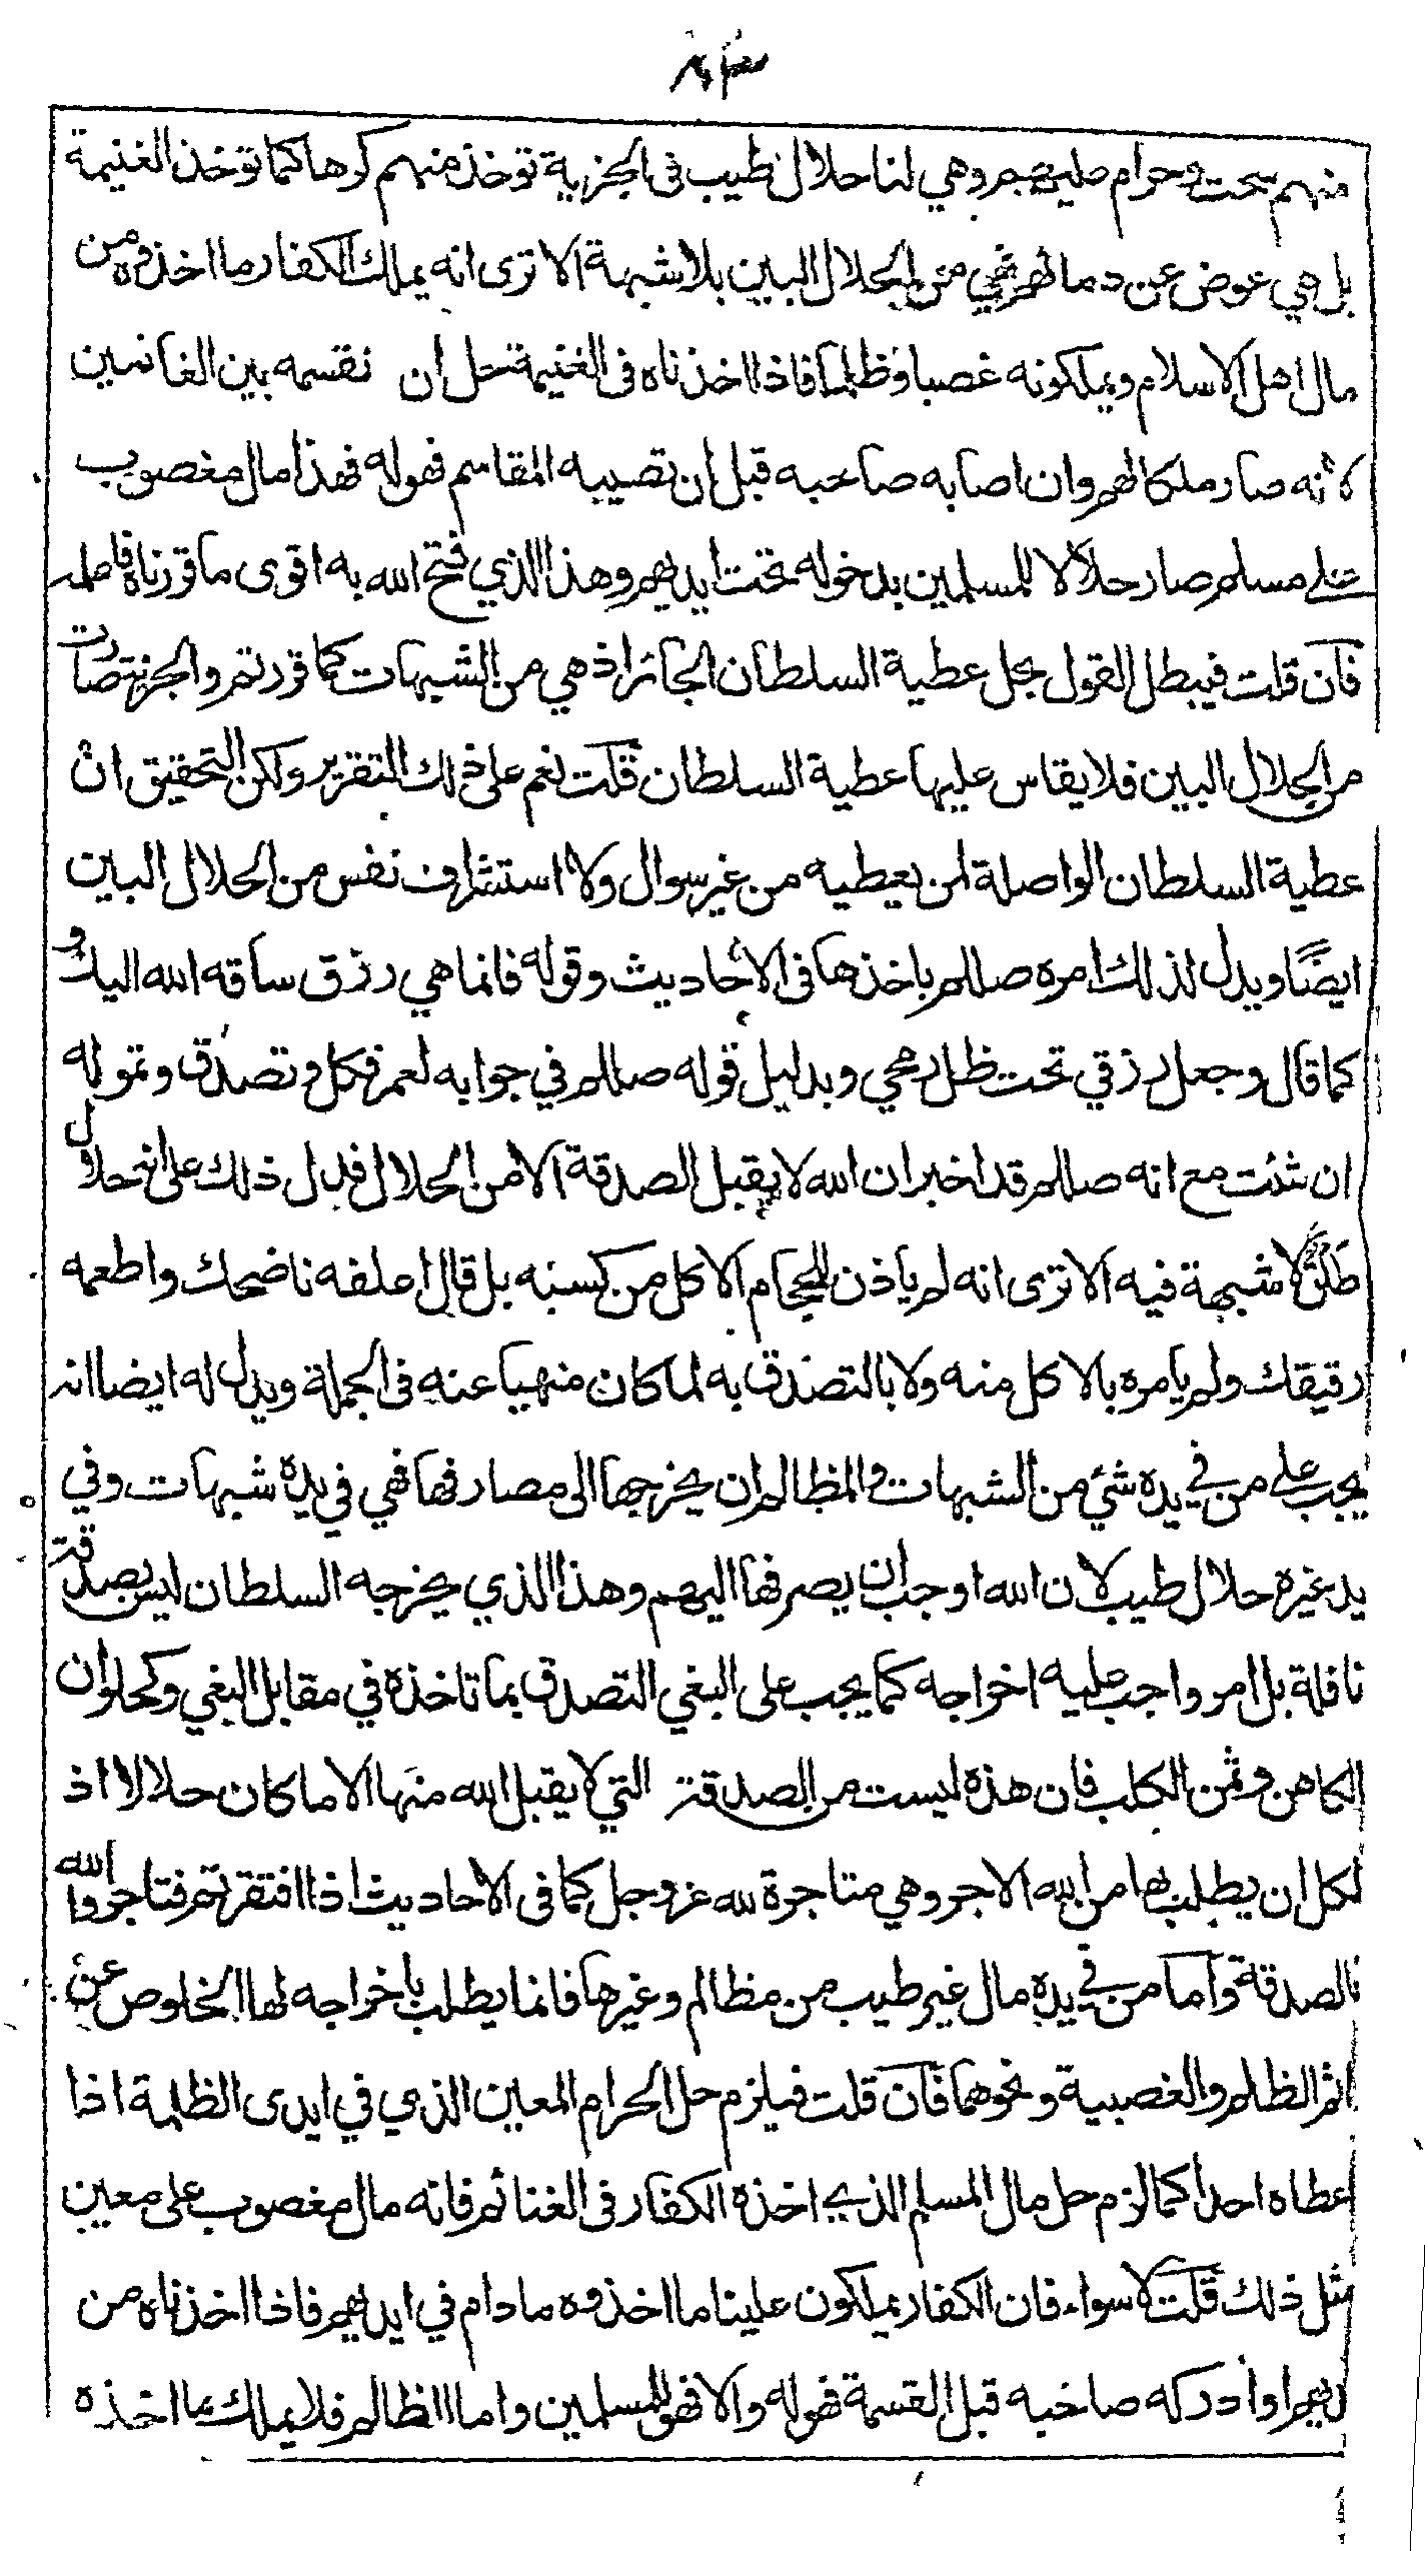 ٨٣
منهم سحت وحرام عليهم وهي لنا حلال طيب فى الجزية توخذ منهم كرها كما توخذ الغنيمة
بل هي عوض عن دمائهم فهي من الحلال البين بلا شبهة الا ترى انه يملك الكفار ما اخذوه من
مال اهل الاسلام ويملكونه غصبا وظلما فاذا اخذناه فى الغنيمة حل ان نقسمه بين الغانمين
لأنه صار ملكا لهم وان اصابه صاحبه قبل ان تصيبه المقاسم فهوله فهذا مال مغصوب
على مسلم صار حلالا للمسلمين بدخوله تحت ايديهم وهذا الذي فتح الله به اقوى ما قررناه فاعلمه
فان قلت فيبطل القول بحل عطية السلطان الجائر اذ هي من الشبهات كما قررتم والجزية صارت
من الحلال البين فلا يقاس عليها عطية السلطان قلت نعم على ذلك التقرير ولكن التحقيق ان
عطية السلطان الواصلة لمن يعطيه من غير سوال ولا استشراف نفس من الحلال البين
ايضًا ويدل لذلك امره صللم باخذها فى الأحاديث وقوله فانما هي رزق ساقه الله اليك و
كما قال وجعل رزقي تحت ظل رمحي وبدليل قوله صللم في جوابه لعمر فكل وتصدق وتموله
ان شئت مع انه صللم قد اخبر ان الله لا يقبل الصدقة الا من الحلال فدل ذلك على انه حلال
طلق لا شبهة فيه الا ترى انه لم ياذن للحجام الاكل من كسبه بل قال اعلفه ناضحك واطعمه
رقيقك ولم يامره بالاكل منه ولا بالتصدق به لما كان منهيا عنه فى الجملة ويدل له ايضا انه
يجب على من في يده شئ من الشبهات والمظالم ان يخرجها الى مصارفها فهي في يده شبهات وفي
يد غيره حلال طيب لان الله اوجب ان يصرفها اليهم وهذا الذي يخرجه السلطان ليس بصدقة
نافلة بل امر واجب عليه اخراجه كما يجب على البغي التصدق بما تاخذه في مقابل البغي وكحلوان
الكاهن وثمن الكلب فان هذه ليست من الصدقة التي لا يقبل الله منها الا ما كان حلالا اذ
لكل ان يطلب بها من الله الاجر وهي متاجرة لله عز وجل كما فى الاحاديث اذا افتقرتم فتاجروا الله
بالصدقة واما من في يده مال غير طيب من مظالم وغيرها فانما يطلب باخراجه لها الخلوص عن
اثم الظلم والغصبية ونحوهما فان قلت فيلزم حل الحرام المعين الذي في ايدى الظلمة اذا
اعطاه احدا كما لزم حل مال المسلم الذي اخذه الكفار فى الغنائم فانه مال مغصوب على معين
مثل ذلك قلت لا سواء فان الكفار يملكون علينا ما اخذوه ما دام في ايديهم فاذا اخذناه من
ايديهم او أدركه صاحبه قبل القسمة فهوله والا فهو للمسلمين واما الظالم فلا يملك ما اخذه